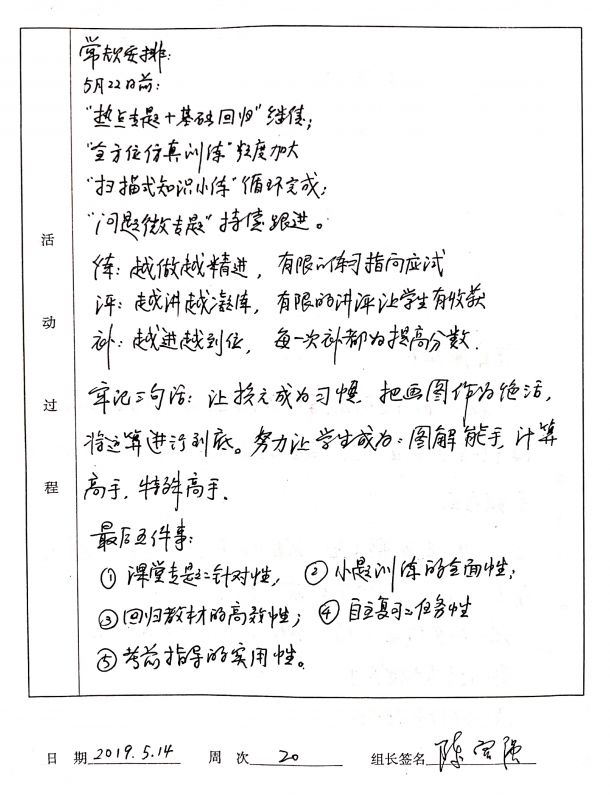 活动过程
常规安排:
5月22日前:
"热点专题+基础回归"继续;
"全方位仿真训练"力度加大
"扫描式知识小练"循环完成;
"问题微专题"持续跟进。
练: 越做越精进, 有限的练习指向应试
评: 越讲越凝练, 有限的讲评让学生有收获
补: 越进越到位, 每一次补都为提高分数.
牢记三句话: 让换元成为习惯 把画图作为绝活,
将运算进行到底。努力让学生成为: 图解能手, 计算
高手, 特殊高手.
最后五件事:
① 课堂专题的针对性, ② 小题训练的全面性;
③ 回归教材的高效性; ④ 自主复习的任务性
⑤ 考前指导的实用性。
日 期 2019.5.14 周 次 20 组长签名 陈 强